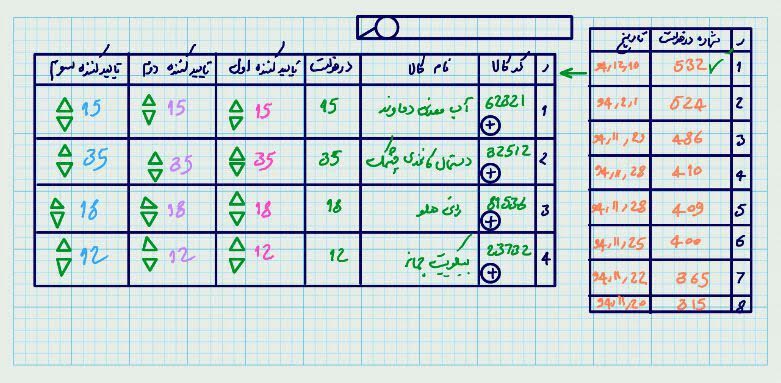 ر شماره درخواست تاریخ
1 532 ✓ 94,12,10
2 524 94,2,1
3 486
4 410 94,11,28
5 409 94,11,28
6 400 94,11,25
7 365 94,11,22
8 315 94,11,20
ر کد کالا نام کالا درخواست تایید کننده اول تایید کننده دوم تایید کننده سوم
1 62321 آب معدنی دماوند 15 15 15 15
2 32512 دستمال کاغذی چشمک 35 35 35 35
3 81536 رانی هلو 18 18 18 18
4 23732 بیسکویت 12 12 12 12